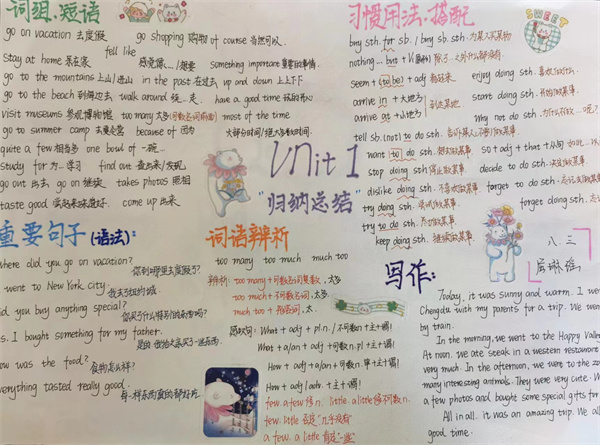 词组.短语
go on vacation 去度假 go shopping 购物 of course 当然可以.
fell like
stay at home 呆在家 感觉像…/想要 something important 重要的事情.
go to the mountains 上山/进山 in the past 在过去 up and down 上上下下
go to the beach 到海边去 walk around 绕…走. have a good time 玩的开心
visit museums 参观博物馆 too many 太多(可数名词前面) most of the time.
go to summer camp 去夏令营 because of 因为 大部分时间/绝大多数时间.
quite a few 相当多 one bowl of 一碗…
study for 为…学习 find out 查出来/发现
go out 出去 go on 继续 takes photos 照相
taste good 尝起来味道好. come up 出来
习惯用法.搭配
buy sth. for sb. / buy sb. sth. 为某人买某物
nothing... but + V(原形) 除了…之外什么都没有.
seem + (to be) + adj 看起来 enjoy doing sth. 喜欢做某事.
arrive in + 大地方 到达某地. start doing sth. 开始做某事.
arrive at + 小地方 why not do sth. 为什么不做…呢?
tell sb. (not) to do sth. 告诉某人(不要)做某事
want to do sth. 想去做某事 so + adj + that + 从句 如此…以
stop doing sth. 停止做某事 decide to do sth. 决定做某事.
dislike doing sth. 不喜欢做某事 forget to do sth. 忘记去做某事
try doing sth. 尝试做某事 forget doing sth.
try to do sth. 尽力做某事
keep doing sth. 继续做某事
Unit 1
"归纳总结"
重要句子(语法):
where did you go on vacation?
你到哪里去度假了?
went to New York city.
我去了纽约城
did you buy anything special?
你买了什么特别的东西吗?
s. I bought something for my father.
是的 我给父亲买了一些东西
how was the food?
食物怎么样?
everything tasted really good.
每一样东西真的都好吃
词语辨析
too many too much much too
辨析: too many + 可数名词复数, 太多
too much + 不可数名词, 太多
much too + 形容词. 太
感叹句: What + adj + pl n. / 不可数n + 主 + 谓!
What + a/an + adj + 可数n. 单 + 主 + 谓!
How + adj + a/an + 可数n. 单 + 主 + 谓!
How + adj / adv. + 主 + 谓!
few. a few 修n. little. a little 修不可数n.
few. little 否定 "几乎没有"
a few. a little 肯定"一些"
SWEET
八.三
写作:
Today, it was sunny and warm. I went
Chengdu with my parents for a trip. We went
by train.
In the morning, we went to the Happy Valley
At noon. we ate steak in a western restaurant
very much. In the afternoon, we went to the zoo
many interesting animals. They were very cute. W
a few photos and bought some special gifts for
All in all, it was an amazing trip. We all
good time.